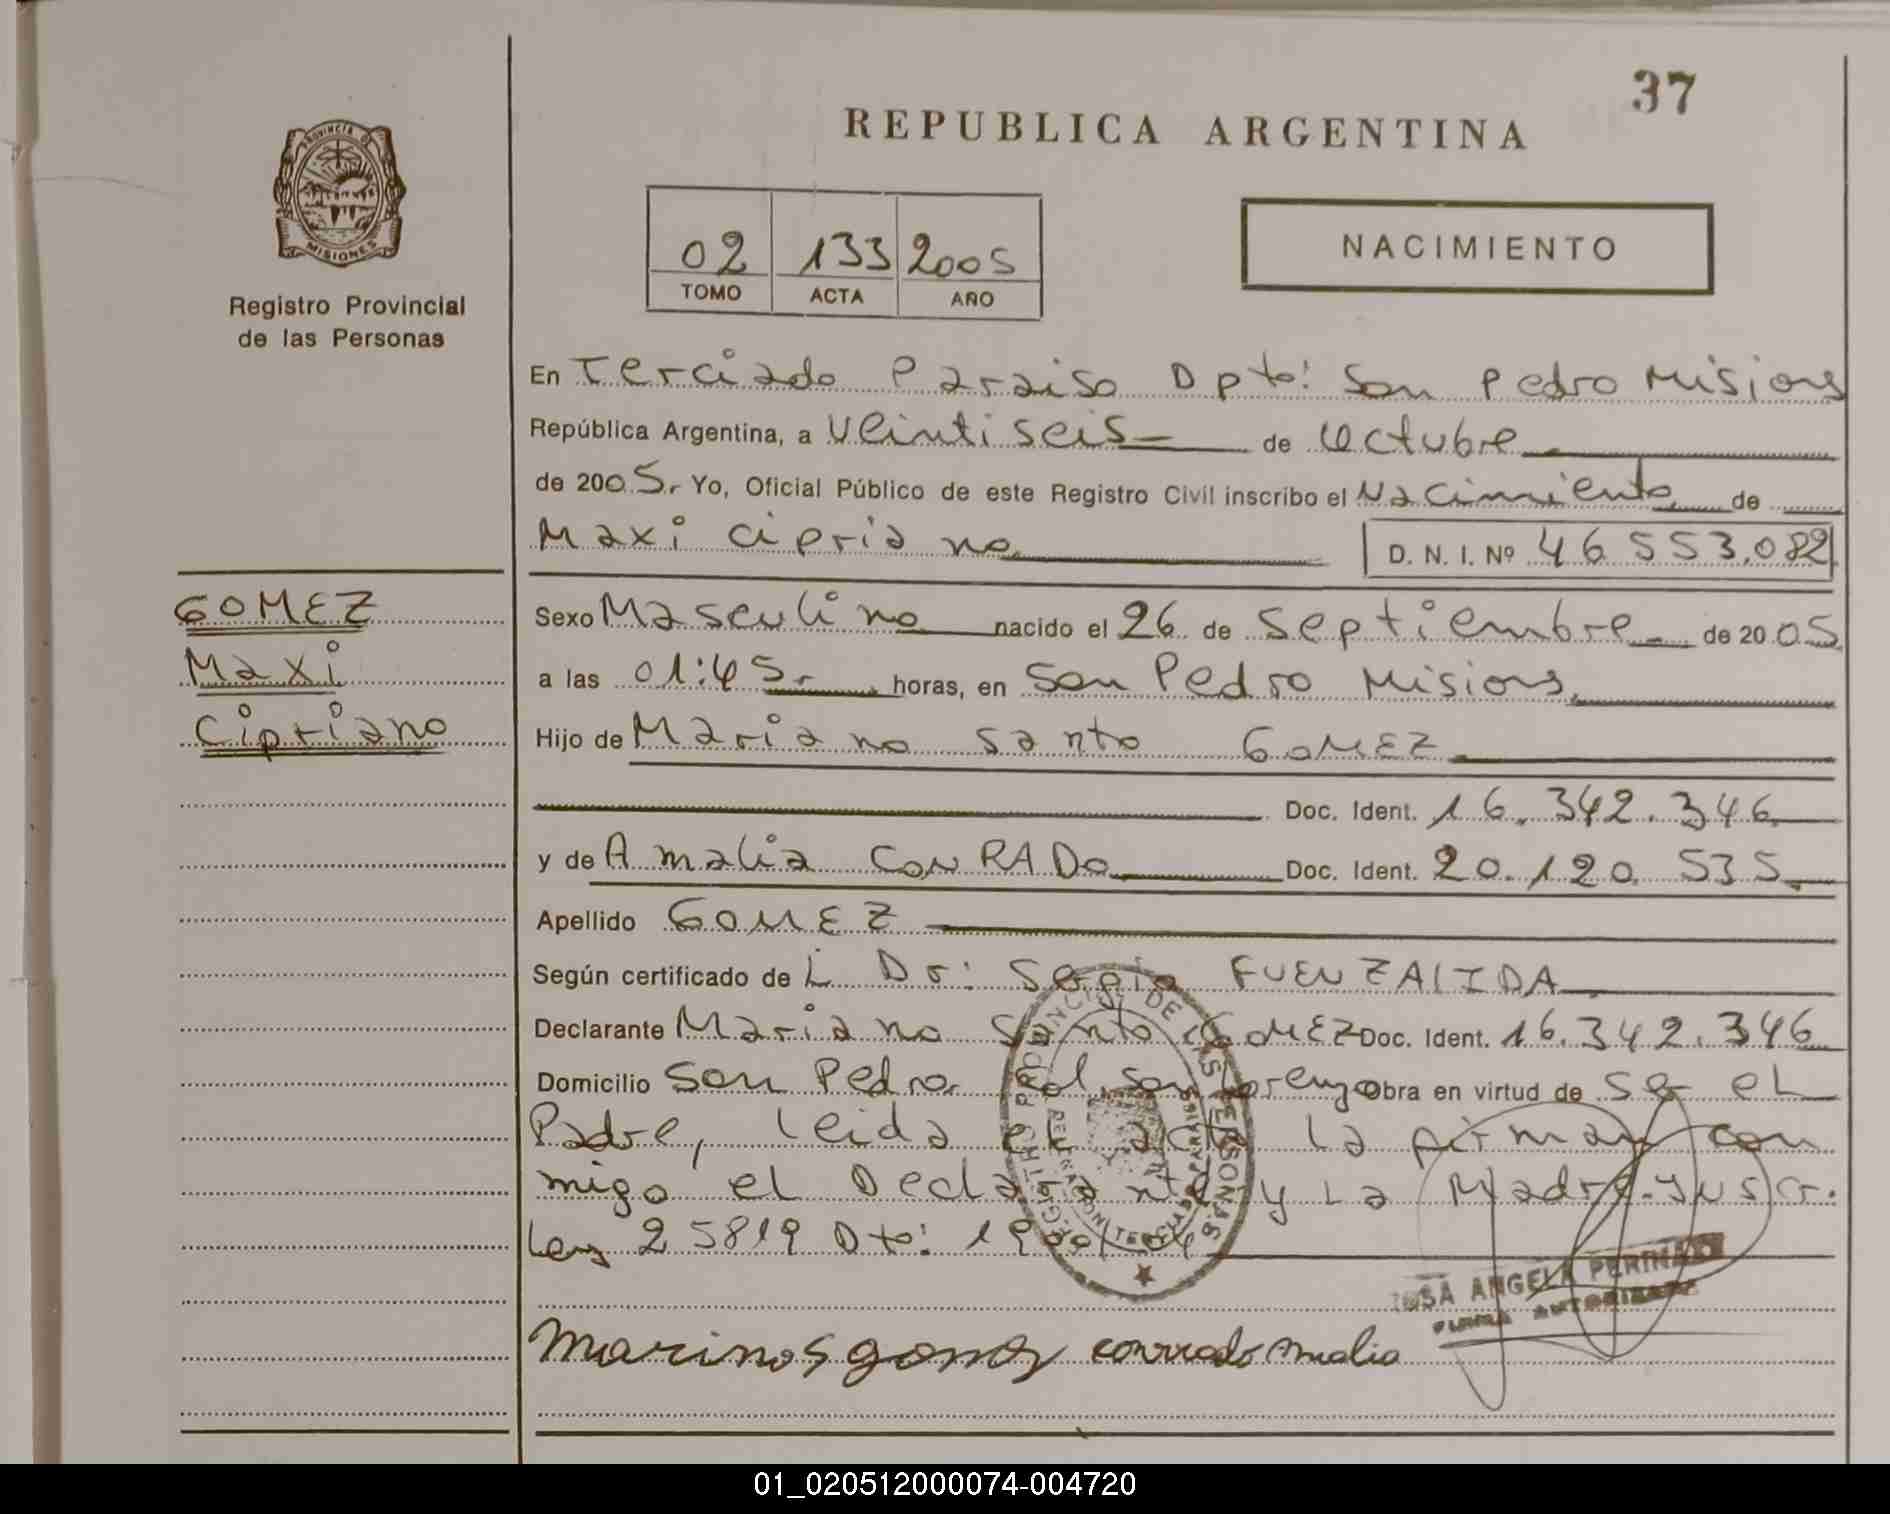 37
REPUBLICA ARGENTINA
PROVINCIA DE MISIONES
Registro Provincial
de las Personas
02 133 2005
TOMO ACTA AÑO
NACIMIENTO
En Terciado Paraiso Dpto: San Pedro Misiones
República Argentina, a veintiseis de octubre
de 2005. Yo, Oficial Público de este Registro Civil inscribo el Nacimiento de
Maxi Cipriano D. N. I. Nº 46.553.082
GOMEZ
Maxi
Cipriano
Sexo Masculino nacido el 26 de Septiembre de 2005
a las 01:45. horas, en San Pedro Misiones.
Hijo de Mariano Santo GOMEZ
Doc. Ident. 16.342.346
y de Amalia CONRADO Doc. Ident. 20.120.535
Apellido GOMEZ
Según certificado de L Dr: Sergio FUENZALIDA
Declarante Mariano Santo GOMEZ Doc. Ident. 16.342.346
Domicilio San Pedro. Col. San Lorenzo obra en virtud de ser el
Padre, leida el acta La firman con
migo el Declarante y La Madre. Inscr.
Ley 25819 Dto:
REGISTRO PROVINCIAL DE LAS PERSONAS
ROSA ANGELA
FIRMA AUTORIZADA
conrado Amalia
01_020512000074-004720